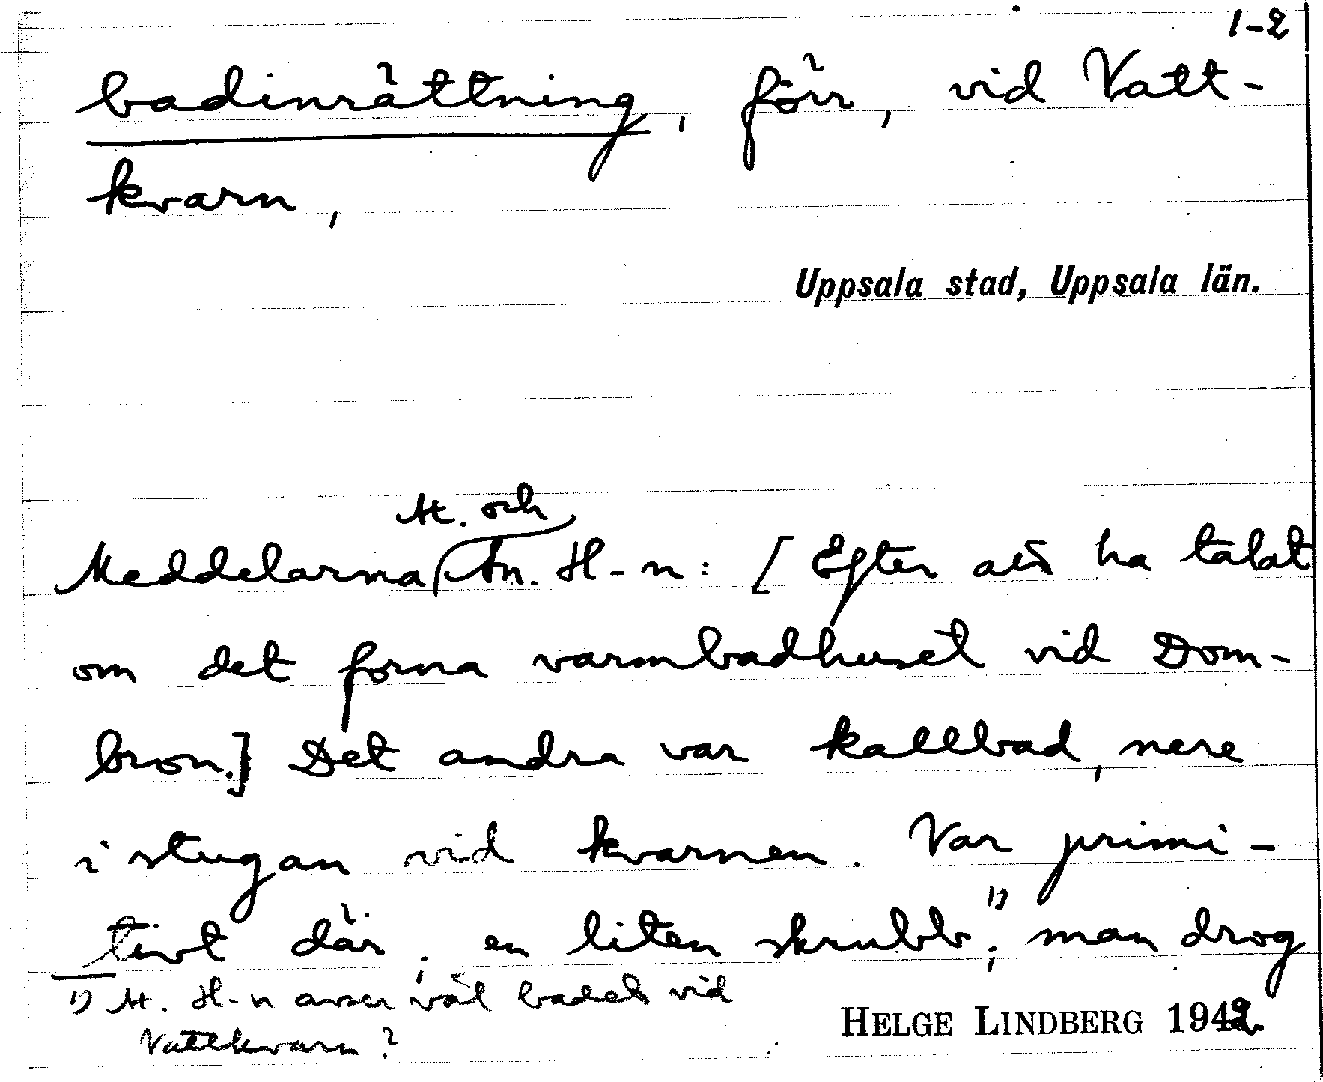 1-2
badinrättning, förr, vid Vatt-
kvarn,
Uppsala stad, Uppsala län.
M. och
Meddelarna An. H-n: [Efter att ha talat
om det forna varmbadhuset vid Dom-
bron.] Det andra var kallbad, nere
i stugan vid kvarnen. Var primi-
tivt där; en liten skrubb;1) man drog
1) M. H-n avser väl badet vid
Vattkvarn?
HELGE LINDBERG 1942.